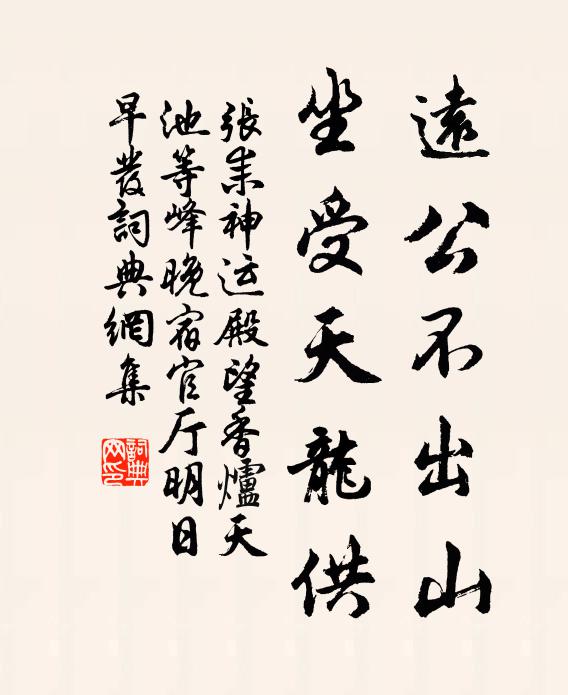 遠公不出山
坐受天龍供
張耒神运殿望香爐天
池等峰晚宿官厅明日
早發詞典網集
詞典
网印